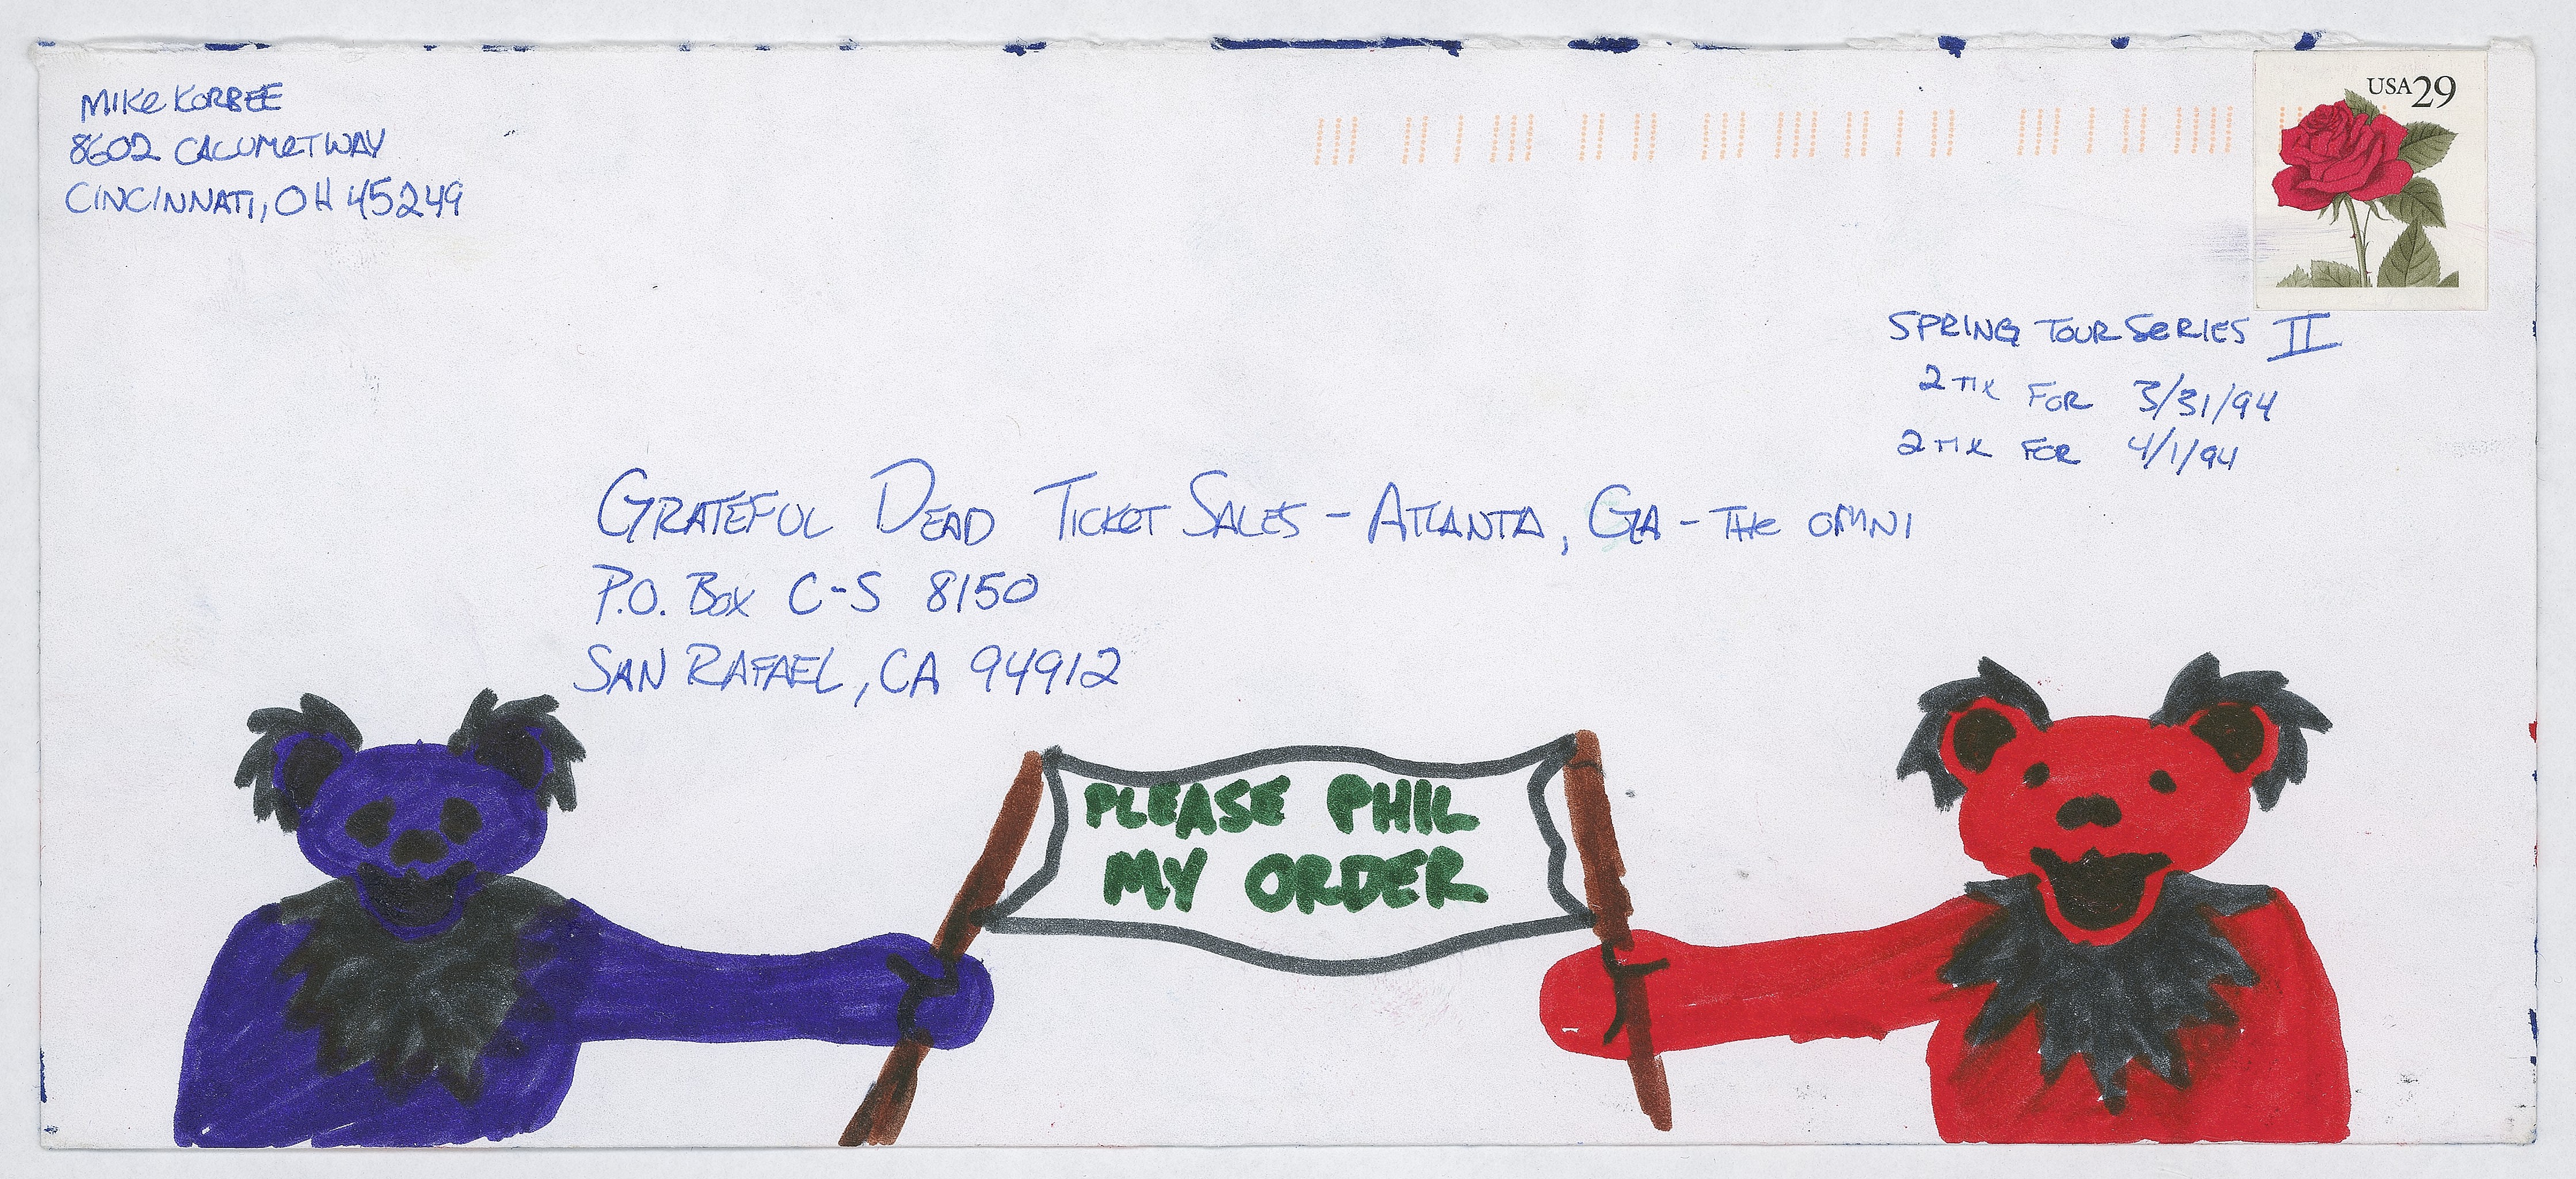 MIKE KORBEE
8602 CALUMET WAY
CINCINNATI, OH 45249
USA 29
SPRING TOUR SERIES II
2 TIX FOR 3/31/94
2 TIX FOR 4/1/94
GRATEFUL DEAD TICKET SALES - ATLANTA, GA - THE OMNI
P.O. BOX C-S 8150
SAN RAFAEL, CA 94912
PLEASE PHIL
MY ORDER